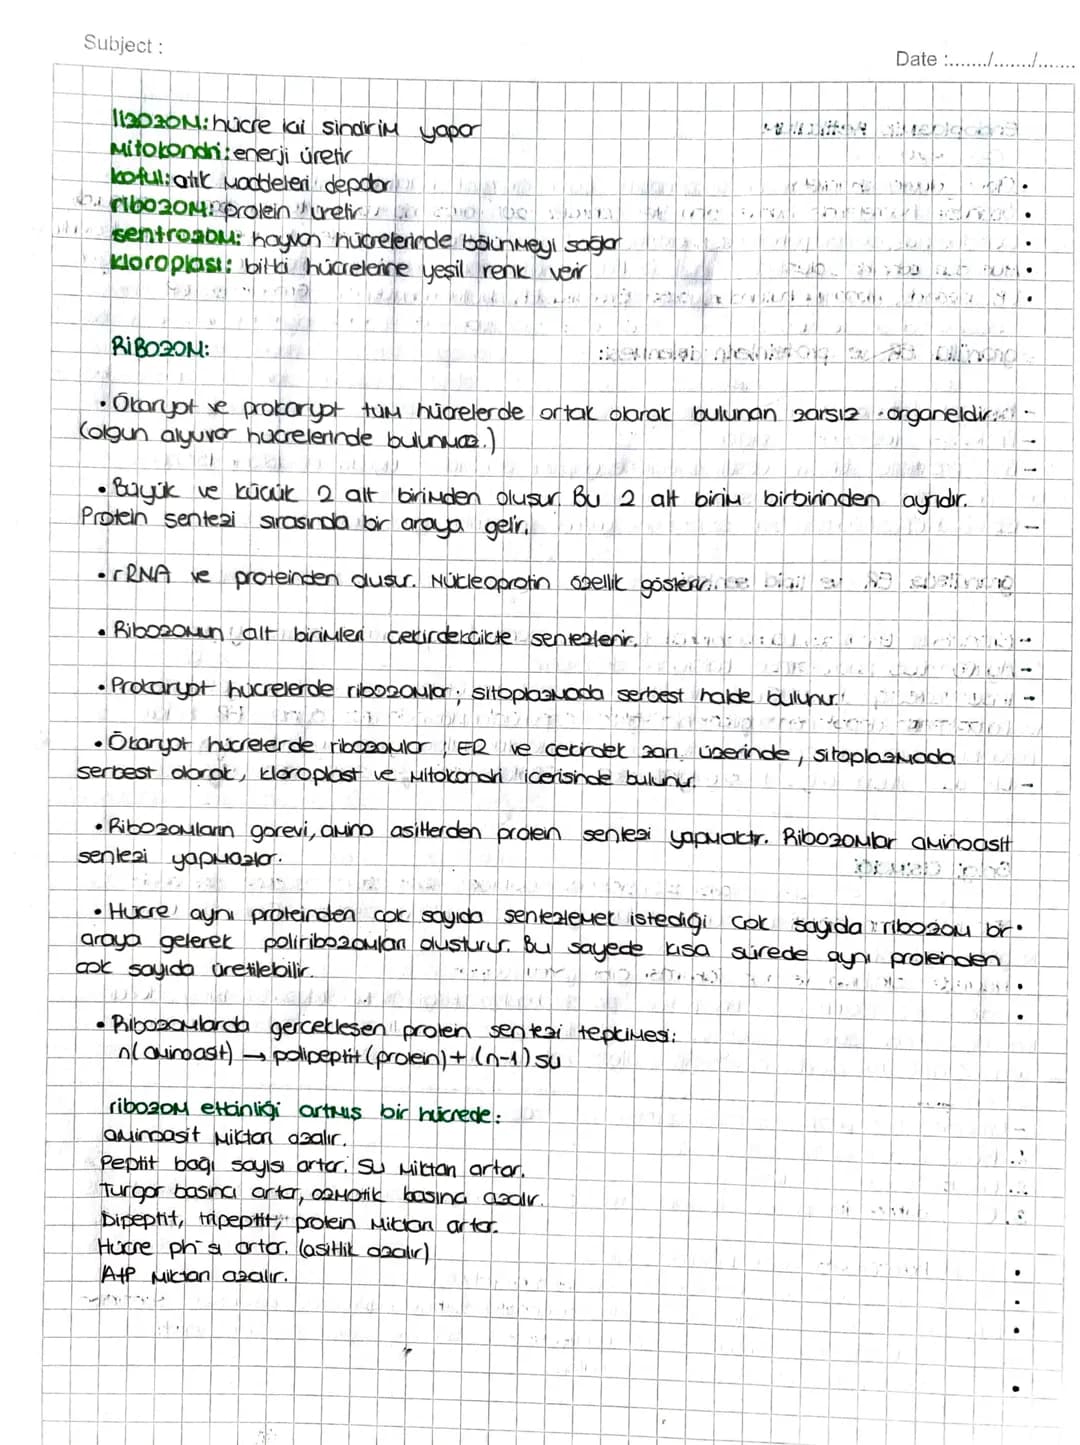 Subject :
Date :......./......./.......
lizozom: hücre ici sindirim yapar
Mitokondri: enerji üretir
koful: atık maddeleri depolar
ribozom: protein üretir
sentrozom: hayvan hücrelerinde bölünmeyi sağlar
kloroplast: bitki hücrelerine yeşil renk verir
RİBOZOM:
• Ökaryot ve prokaryot tüm hücrelerde ortak olarak bulunan zarsız organeldir.
(olgun alyuvar hücrelerinde bulunmaz.)
• Büyük ve kücük 2 alt birimden olusur. Bu 2 alt birim birbirinden ayrıdır.
Protein sentezi sırasında bir araya gelir.
• rRNA ve proteinden olusur. Nükleoprotin özellik gösterir.
• Ribozomun alt birimleri cekirdekcikte sentezlenir.
• Prokaryot hücrelerde ribozomlar; sitoplazmada serbest halde bulunur.
• Ökaryot hücrelerde ribozomlar; ER ve cekirdek zarı üzerinde, sitoplazmada
serbest olarak, kloroplast ve mitokondri icerisinde bulunur.
• Ribozomların gorevi, amino asitlerden protein sentezi yapmaktır. Ribozomlar aminoasit
sentezi yapmazlar.
• Hücre aynı proteinden cok sayıda sentezlemek istediği cok sayıda ribozom bir
araya gelerek poliribozomları olusturur. Bu sayede kısa sürede aynı proteinden
cok sayıda üretilebilir.
• Ribozomlarda gerceklesen protein sentezi tepkimesi:
n(aminoast) → polipeptit (protein) + (n-1) su
ribozom etkinliği artmıs bir hücrede:
aminoasit miktarı azalır.
Peptit bağı sayısı artar. Su miktarı artar.
Turgor basıncı artar, ozmotik basıncı azalır.
Dipeptit, tripeptit, protein miktarı artar.
Hücre ph'sı artar. (asitlik azalır)
ATP miktarı azalır.